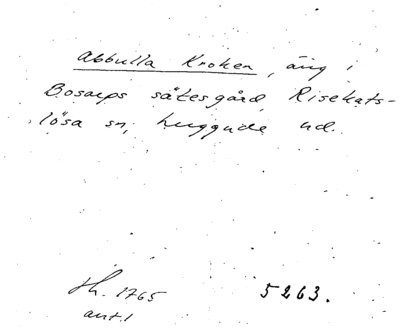 Abbulla Kroken, äng i
Bosarps sätesgård, Risekats-
lösa sn, Luggude hd.
th. 1765
ant.1
5263.